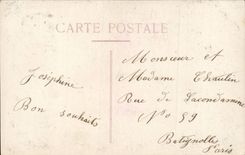 CARTE POSTALE
Joséphine
Bon souhaits
Monsieur et
Madame
Rue de Lacondamine
No 59
Batignolles
Paris